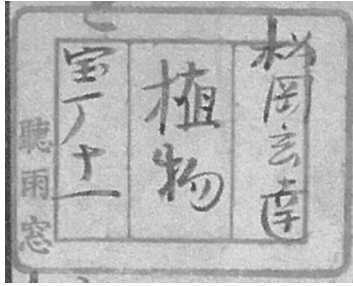 松岡玄達
植物
宝厂十一
聽雨窓